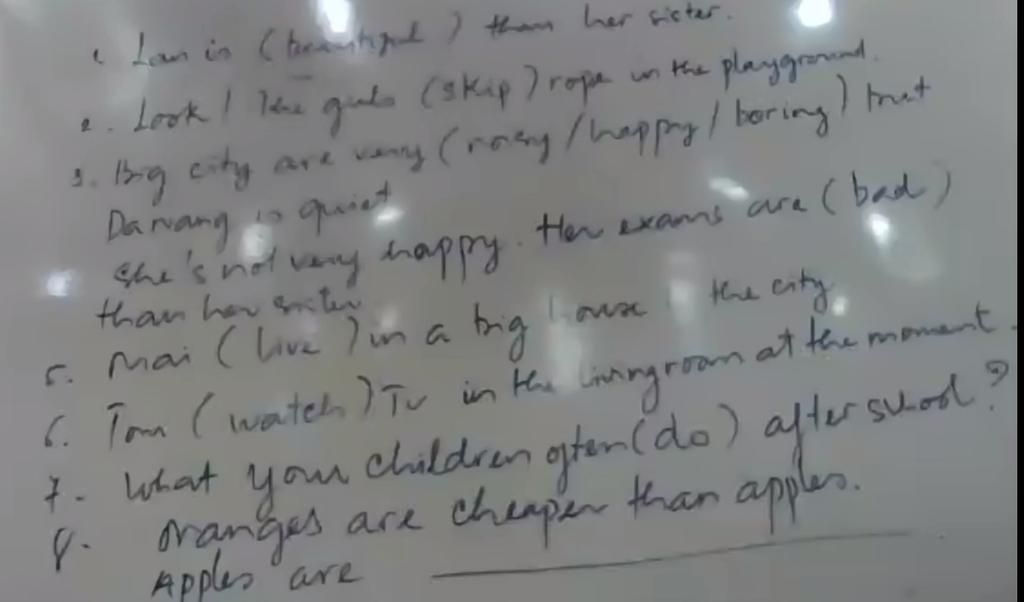 1. Lan is (beautiful) than her sister.
2. Look! The girls (skip) rope in the playground.
3. Big city are very (noisy/happy/boring) but
Danang is quiet
She's not very happy. Her exams are (bad)
than her sister
5. Mai (live) in a big house the city
6. Tom (watch) TV in the livingroom at the moment.
7. What your children often (do) after school?
8. Oranges are cheaper than apples.
Apples are